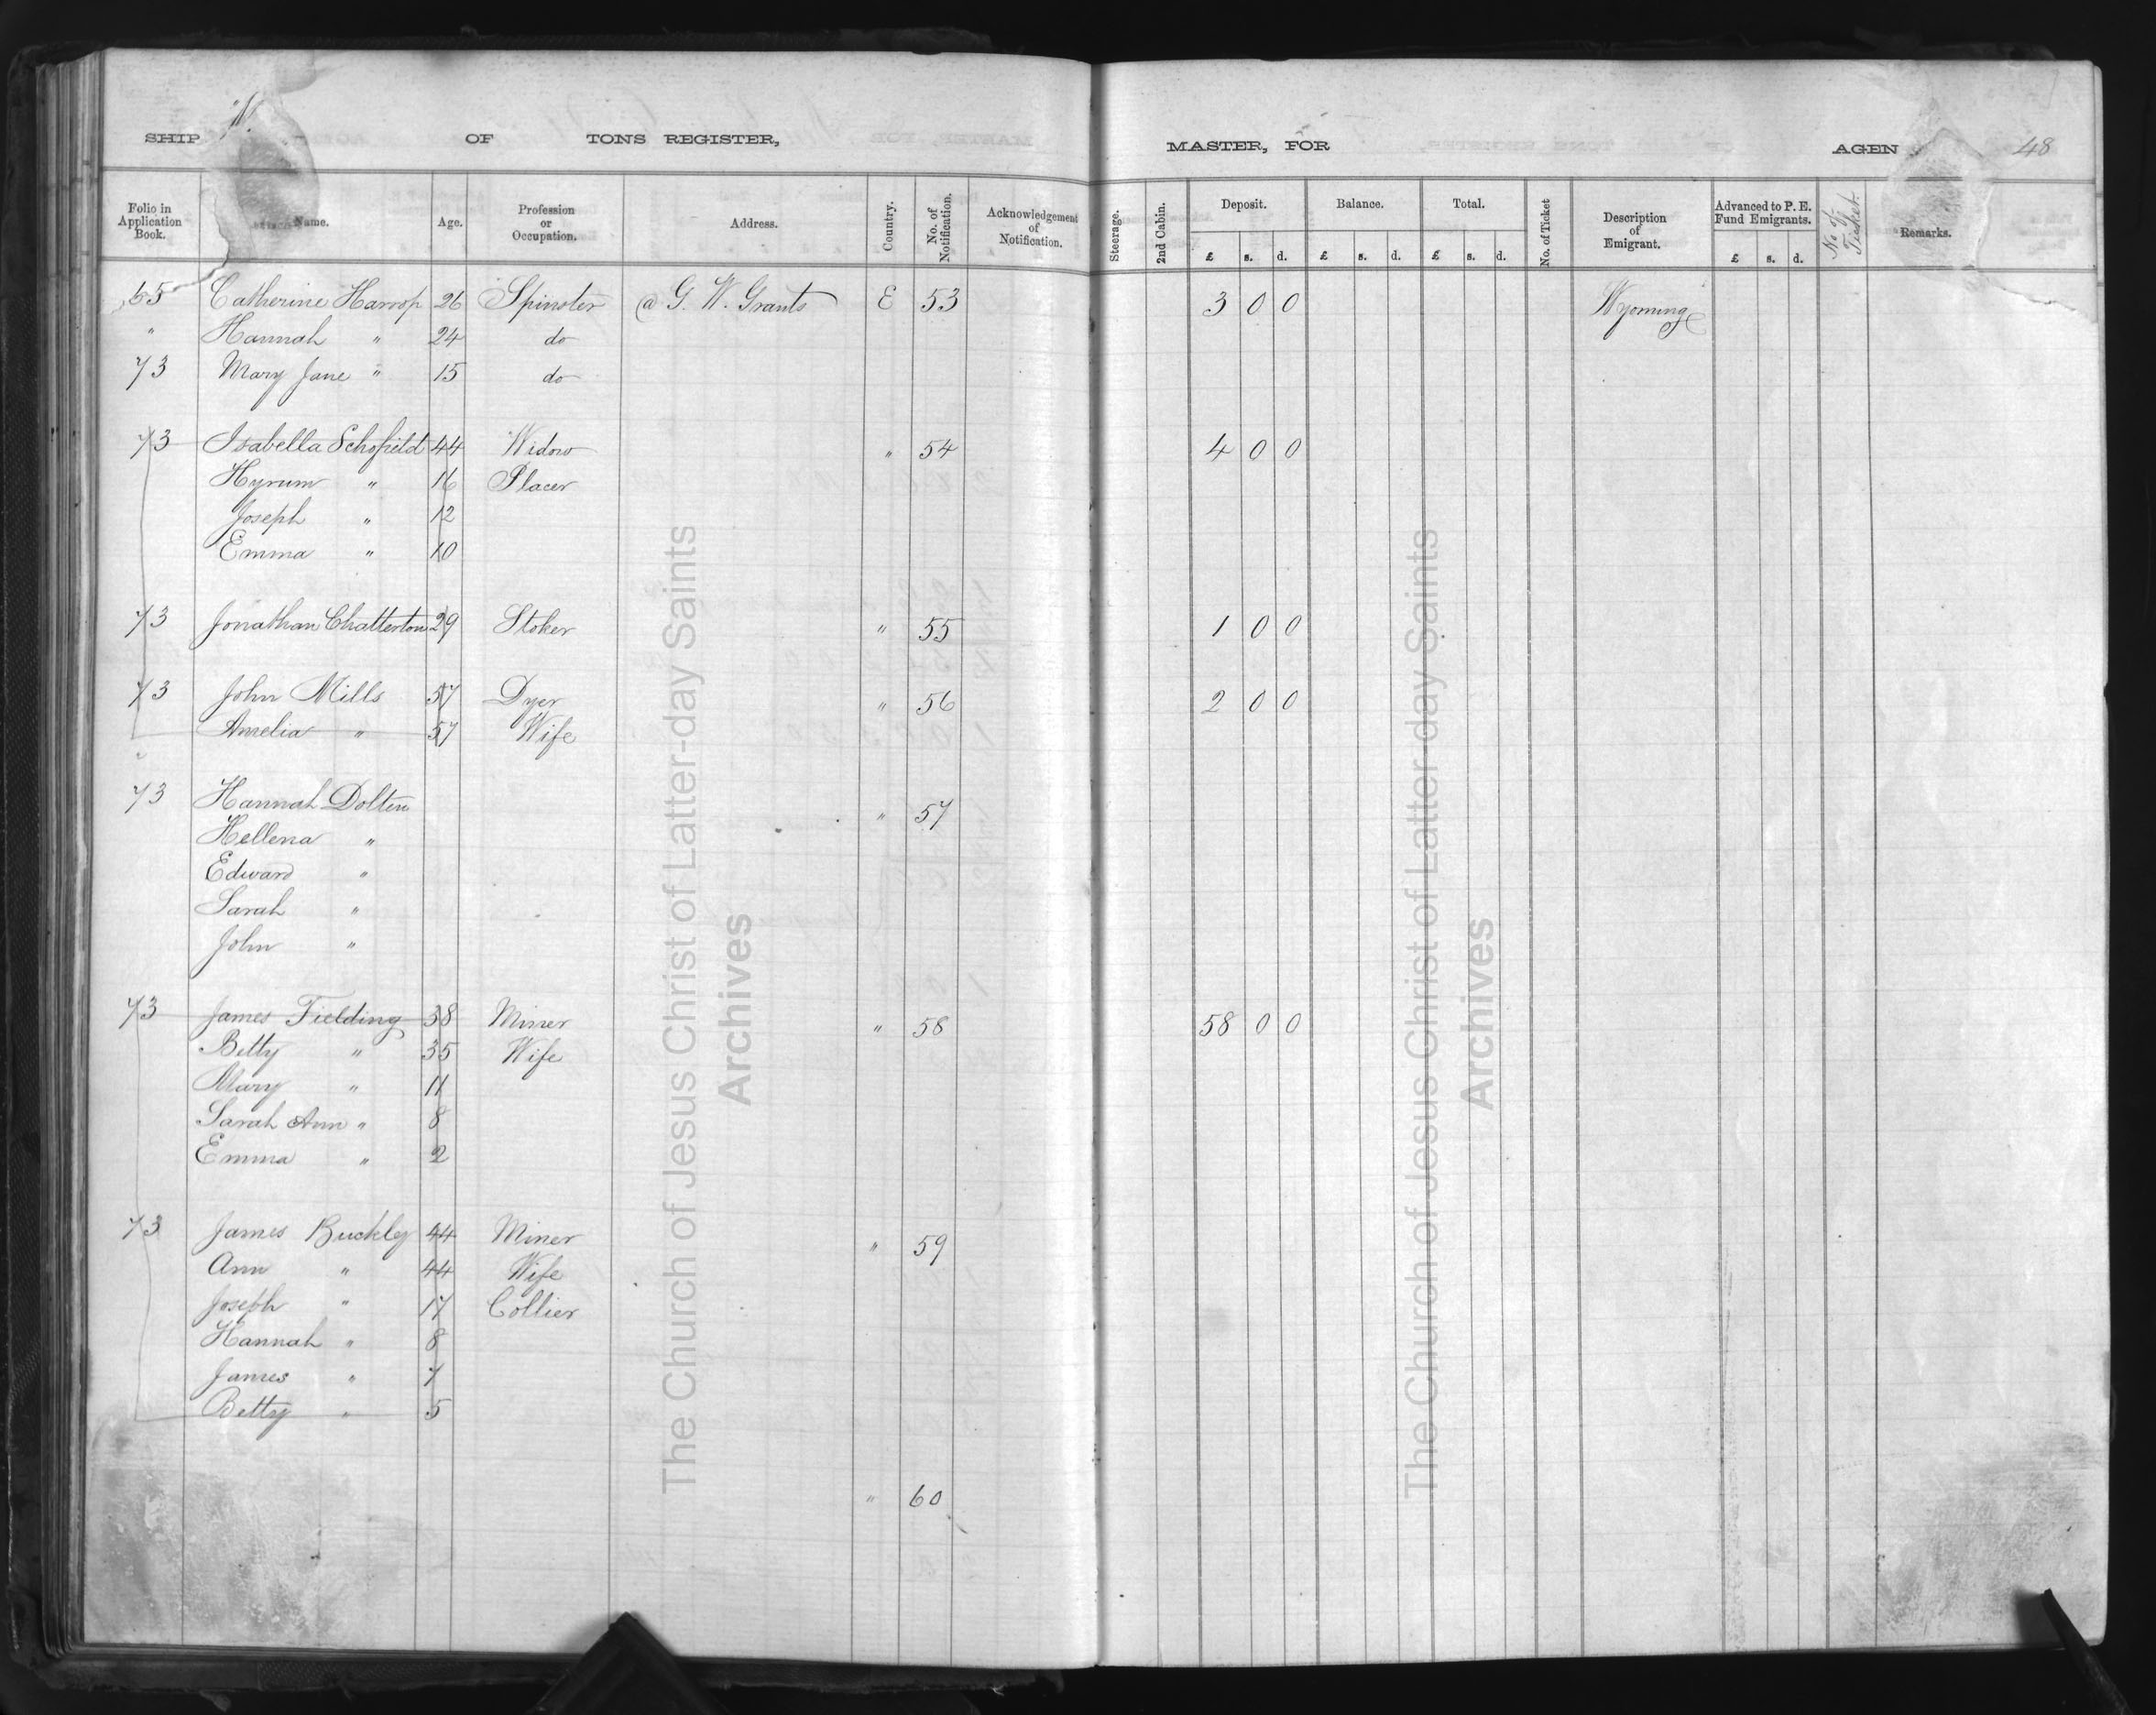 SHIP OF TONS REGISTER, MASTER, FOR AGEN 48
Folio in Application Book. Name. Age. Profession or Occupation. Address. Country. No. of Notification. Acknowledgement of Notification. Steerage. 2nd Cabin. Deposit. £ s. d. Balance. £ s. d. Total. £ s. d. No. of Ticket Description of Emigrant. Advanced to P. E. Fund Emigrants. £ s. d. No of Ticket. Remarks.
65 Catherine Harrop 26 Spinster @ G. W. Grants E 53 3 0 0 Wyoming
" Hannah " 24 do
73 Mary Jane " 15 do
73 Isabella Schofield 44 Widow " 54 4 0 0
Hyrum " 16 Placer
Joseph " 12
Emma " 10
73 Jonathan Chatterton 29 Stoker " 55 1 0 0
73 John Mills 57 Dyer " 56 2 0 0
Amelia " 57 Wife
73 Hannah Dolten " 57
Hellena "
Edward "
Sarah "
John "
73 James Fielding 38 Miner " 58 58 0 0
Betty " 35 Wife
Mary " 11
Sarah Ann " 8
Emma " 2
73 James Buckley 44 Miner " 59
Ann " 44 Wife
Joseph " 17 Collier
Hannah " 8
James " 7
Betty " 5
" 60
The Church of Jesus Christ of Latter-day Saints
Archives
The Church of Jesus Christ of Latter-day Saints
Archives